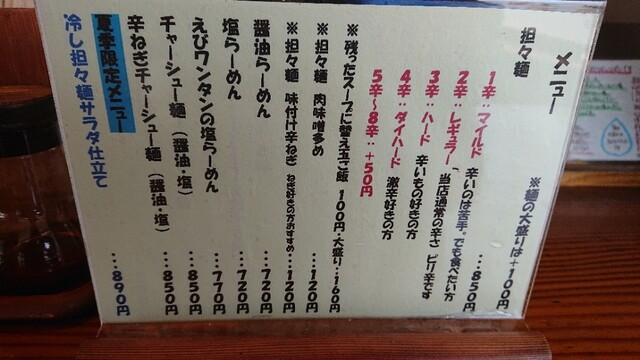 メニュー
※麺の大盛りは+100円
担々麺
1辛:マイルド 辛いのは苦手、でも食べたい方 …850円
2辛:レギュラー、当店通常の辛さ ピリ辛です
3辛:ハード 辛いもの好きの方
4辛:ダイハード 激辛好きの方
5辛~8辛:+50円
※残ったスープに替え玉ご飯 100円・大盛り:160円
※担々麺 肉味噌多め …120円
※担々麺 味付け辛ねぎ ねぎ好きの方おすすめ…120円
醤油らーめん …720円
塩らーめん …720円
えびワンタンの塩らーめん …770円
チャーシュー麺(醤油・塩) …850円
辛ねぎチャーシュー麺(醤油・塩) …850円
夏季限定メニュー
冷し担々麺サラダ仕立て …890円